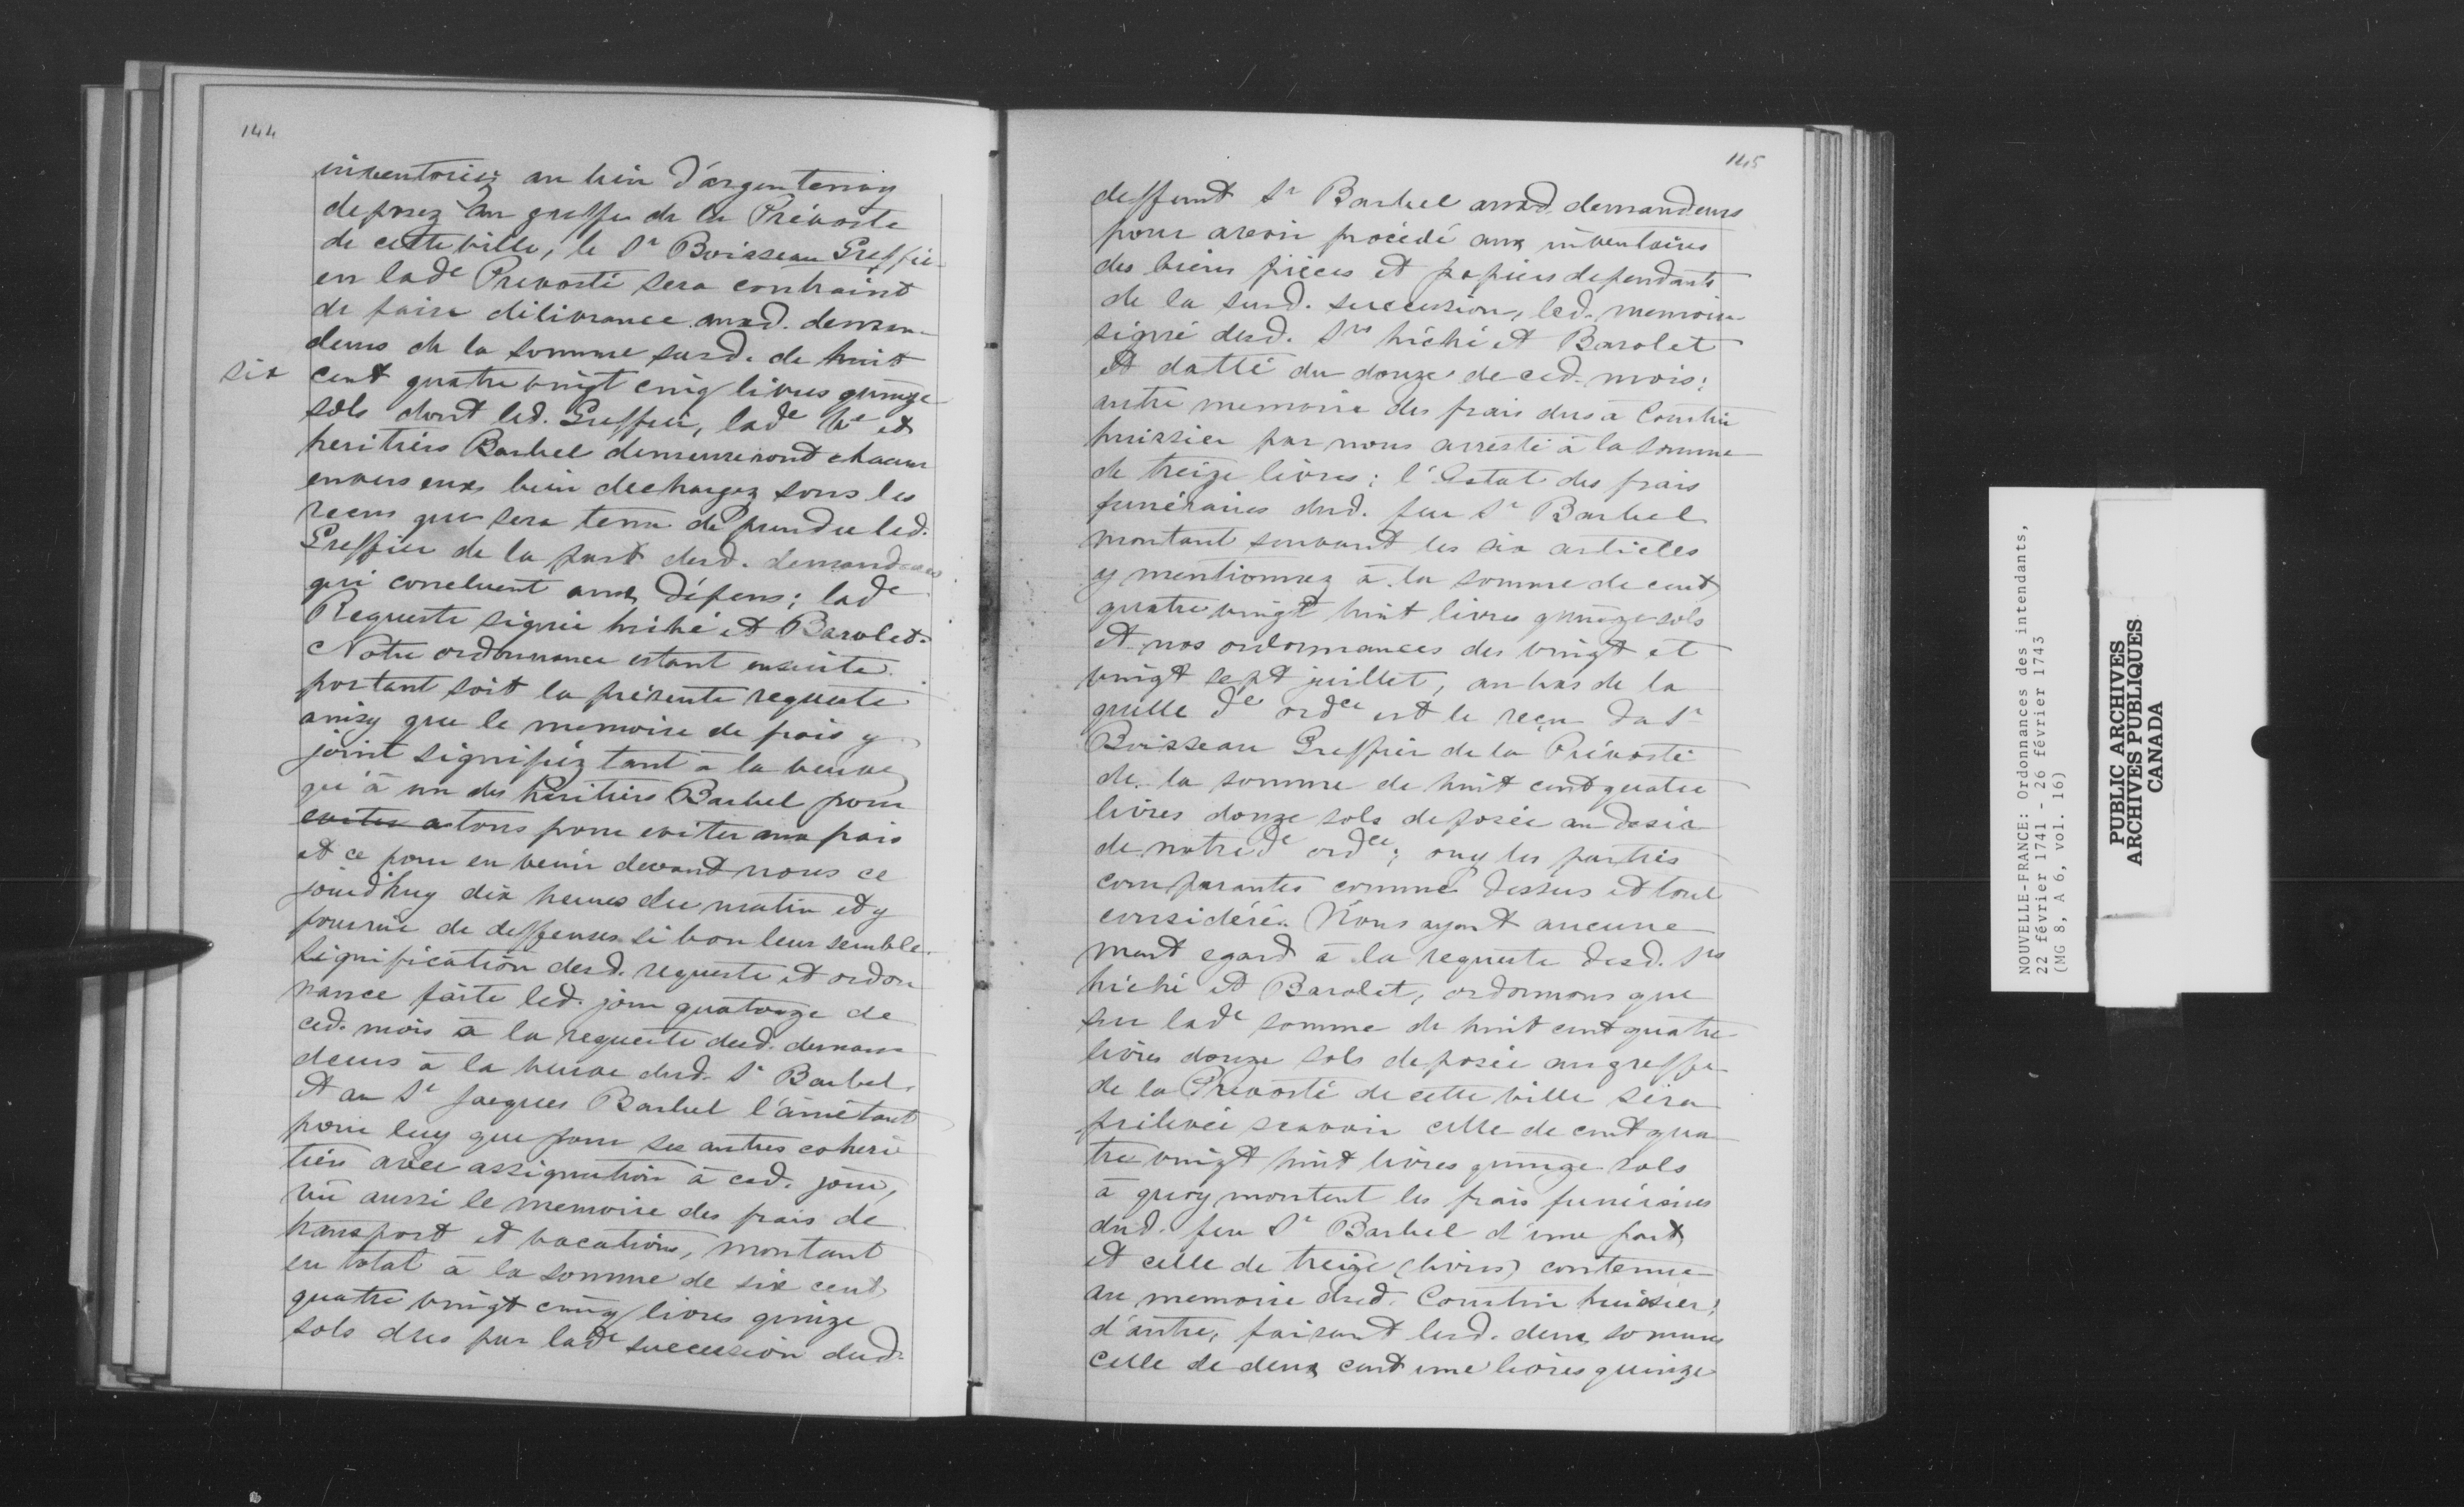 144
inventoriez au lieu d'argentenay
deposez au greffe de la Prévosté
de cette ville, le Sr Boisseau Greffier
en lade Prevosté sera contraint
de faire délivrance auxd. deman-
deurs de la somme susd. de huit
six
cent quatre vingt cinq livres quinze
sols dont led. Greffier, lade Ve et
heritiers Barbel demeureront chacun
envers eux bien dechargez sous les
recus que sera tenu de prendre led.
Greffier de la part desd. demandeurs
qui concluent aux dépens; lade
Requeste signée hiché et Barolet.
Notre ordonnance estant ensuite
portant soit la présente requeste
ainsy que le memoire de frais y
joint signifiéz tant à la veuve
qu'à un des héritiers Barbel pour
eviter a tous pour eviter aux frais
et ce pour en venir devant nous ce
jourd'huy dix heures du matin et y
fournir de deffenses si bon leur semble.
Signification desd. requeste et ordon
nance faite led. jour quatorze de
ced. mois à la requeste desd. deman
deurs à la veuve dud. Sr Barbel.
et au Sr Jacques Barbel l'ainé tant
pour luy que pour ses autres coheri
tiers avec assignation à ced. jour,
vû aussi le memoire des frais de
transport et vacations, montant
en total à la somme de six cent
quatre vingt cinq livres quinze
sols dus par lade succession dud.
145
deffunt Sr Barbel auxd. demandeurs
pour avoir procédé aux inventaires
des biens pièces et papiers dependants
de la susd. succession, led. memoire
signé desd. Srs hiché et Barolet
et datté du douze de ced. mois;
autre memoire des frais dus à Courtin
huissier par nous arresté à la somme
de treize livres; l'Estat des frais
funéraires dud. feu Sr Barbel
montant suivant les six articles
y mentionnez à la somme de cent
quatre vingt huit livres quinze sols
et nos ordonnances des vingt et
vingt sept juillet, au bas de la
quelle de ordce est le reçu du Sr
Boisseau Greffier de la Prévosté
de la somme de huit cent quatre
livres douze sols deposée au desir
de notre de ordce; ouy les parties
comparantes comme dessus et tout
considéré. Nous ayant aucune
ment egard à la requeste desd. Srs
hiché et Barolet, ordonnons que
sur lade somme de huit cent quatre
livres douze sols deposée au greffe
de la Prevosté de cette ville sera
prélevée scavoir celle de cent qua
tre vingt huit livres quinze sols
à quoy montent les frais funéraires
dud. feu Sr Barbel d'une part,
et celle de treize (livres) contenue
au memoire dud. Courtin huissier,
d'autre, faisant lesd. deux sommes
celle de deux cent une livres quinze
NOUVELLE-FRANCE: Ordonnances des intendants,
22 février 1741 - 26 février 1743
(MG 8, A 6, vol. 16)
PUBLIC ARCHIVES
ARCHIVES PUBLIQUES
CANADA